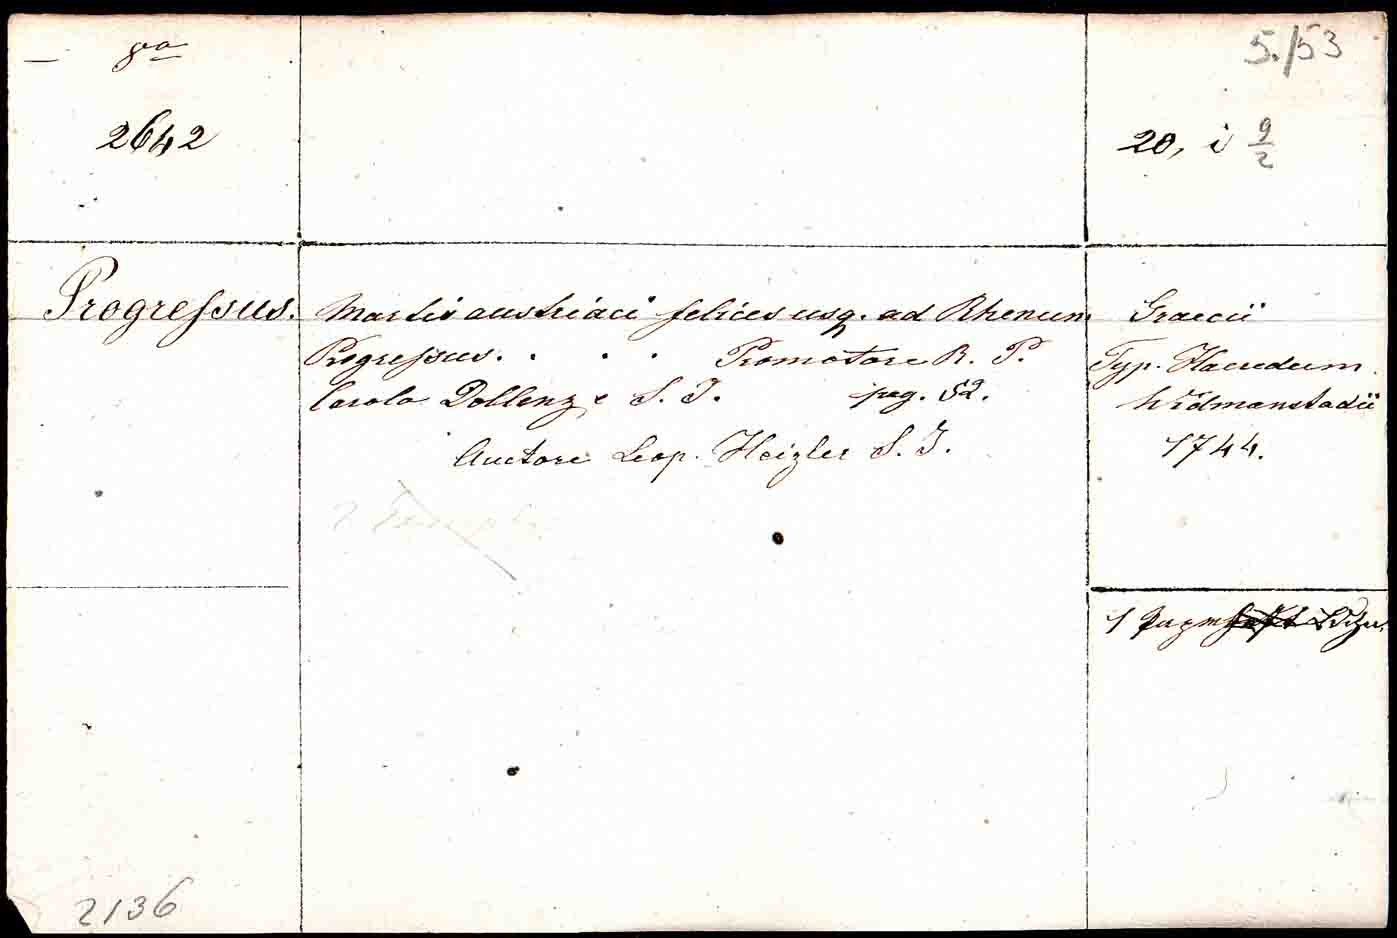 — 8vo
2642
5./53
20, i 9/2
Progressus.
Martis austriaci felices usq. ad Rhenum
Progressus. . . . Promotore R. P.
Carolo Dollenz e S. J. pag. 52.
Auctore Leop. Heizler S. J.
Graecii
Typ. Haeredum.
Widmanstadii
1744.
1
2136